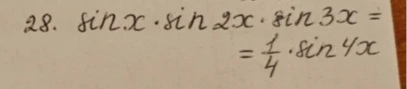 28. sin x · sin 2x · sin 3x =
= 1/4 · sin 4x